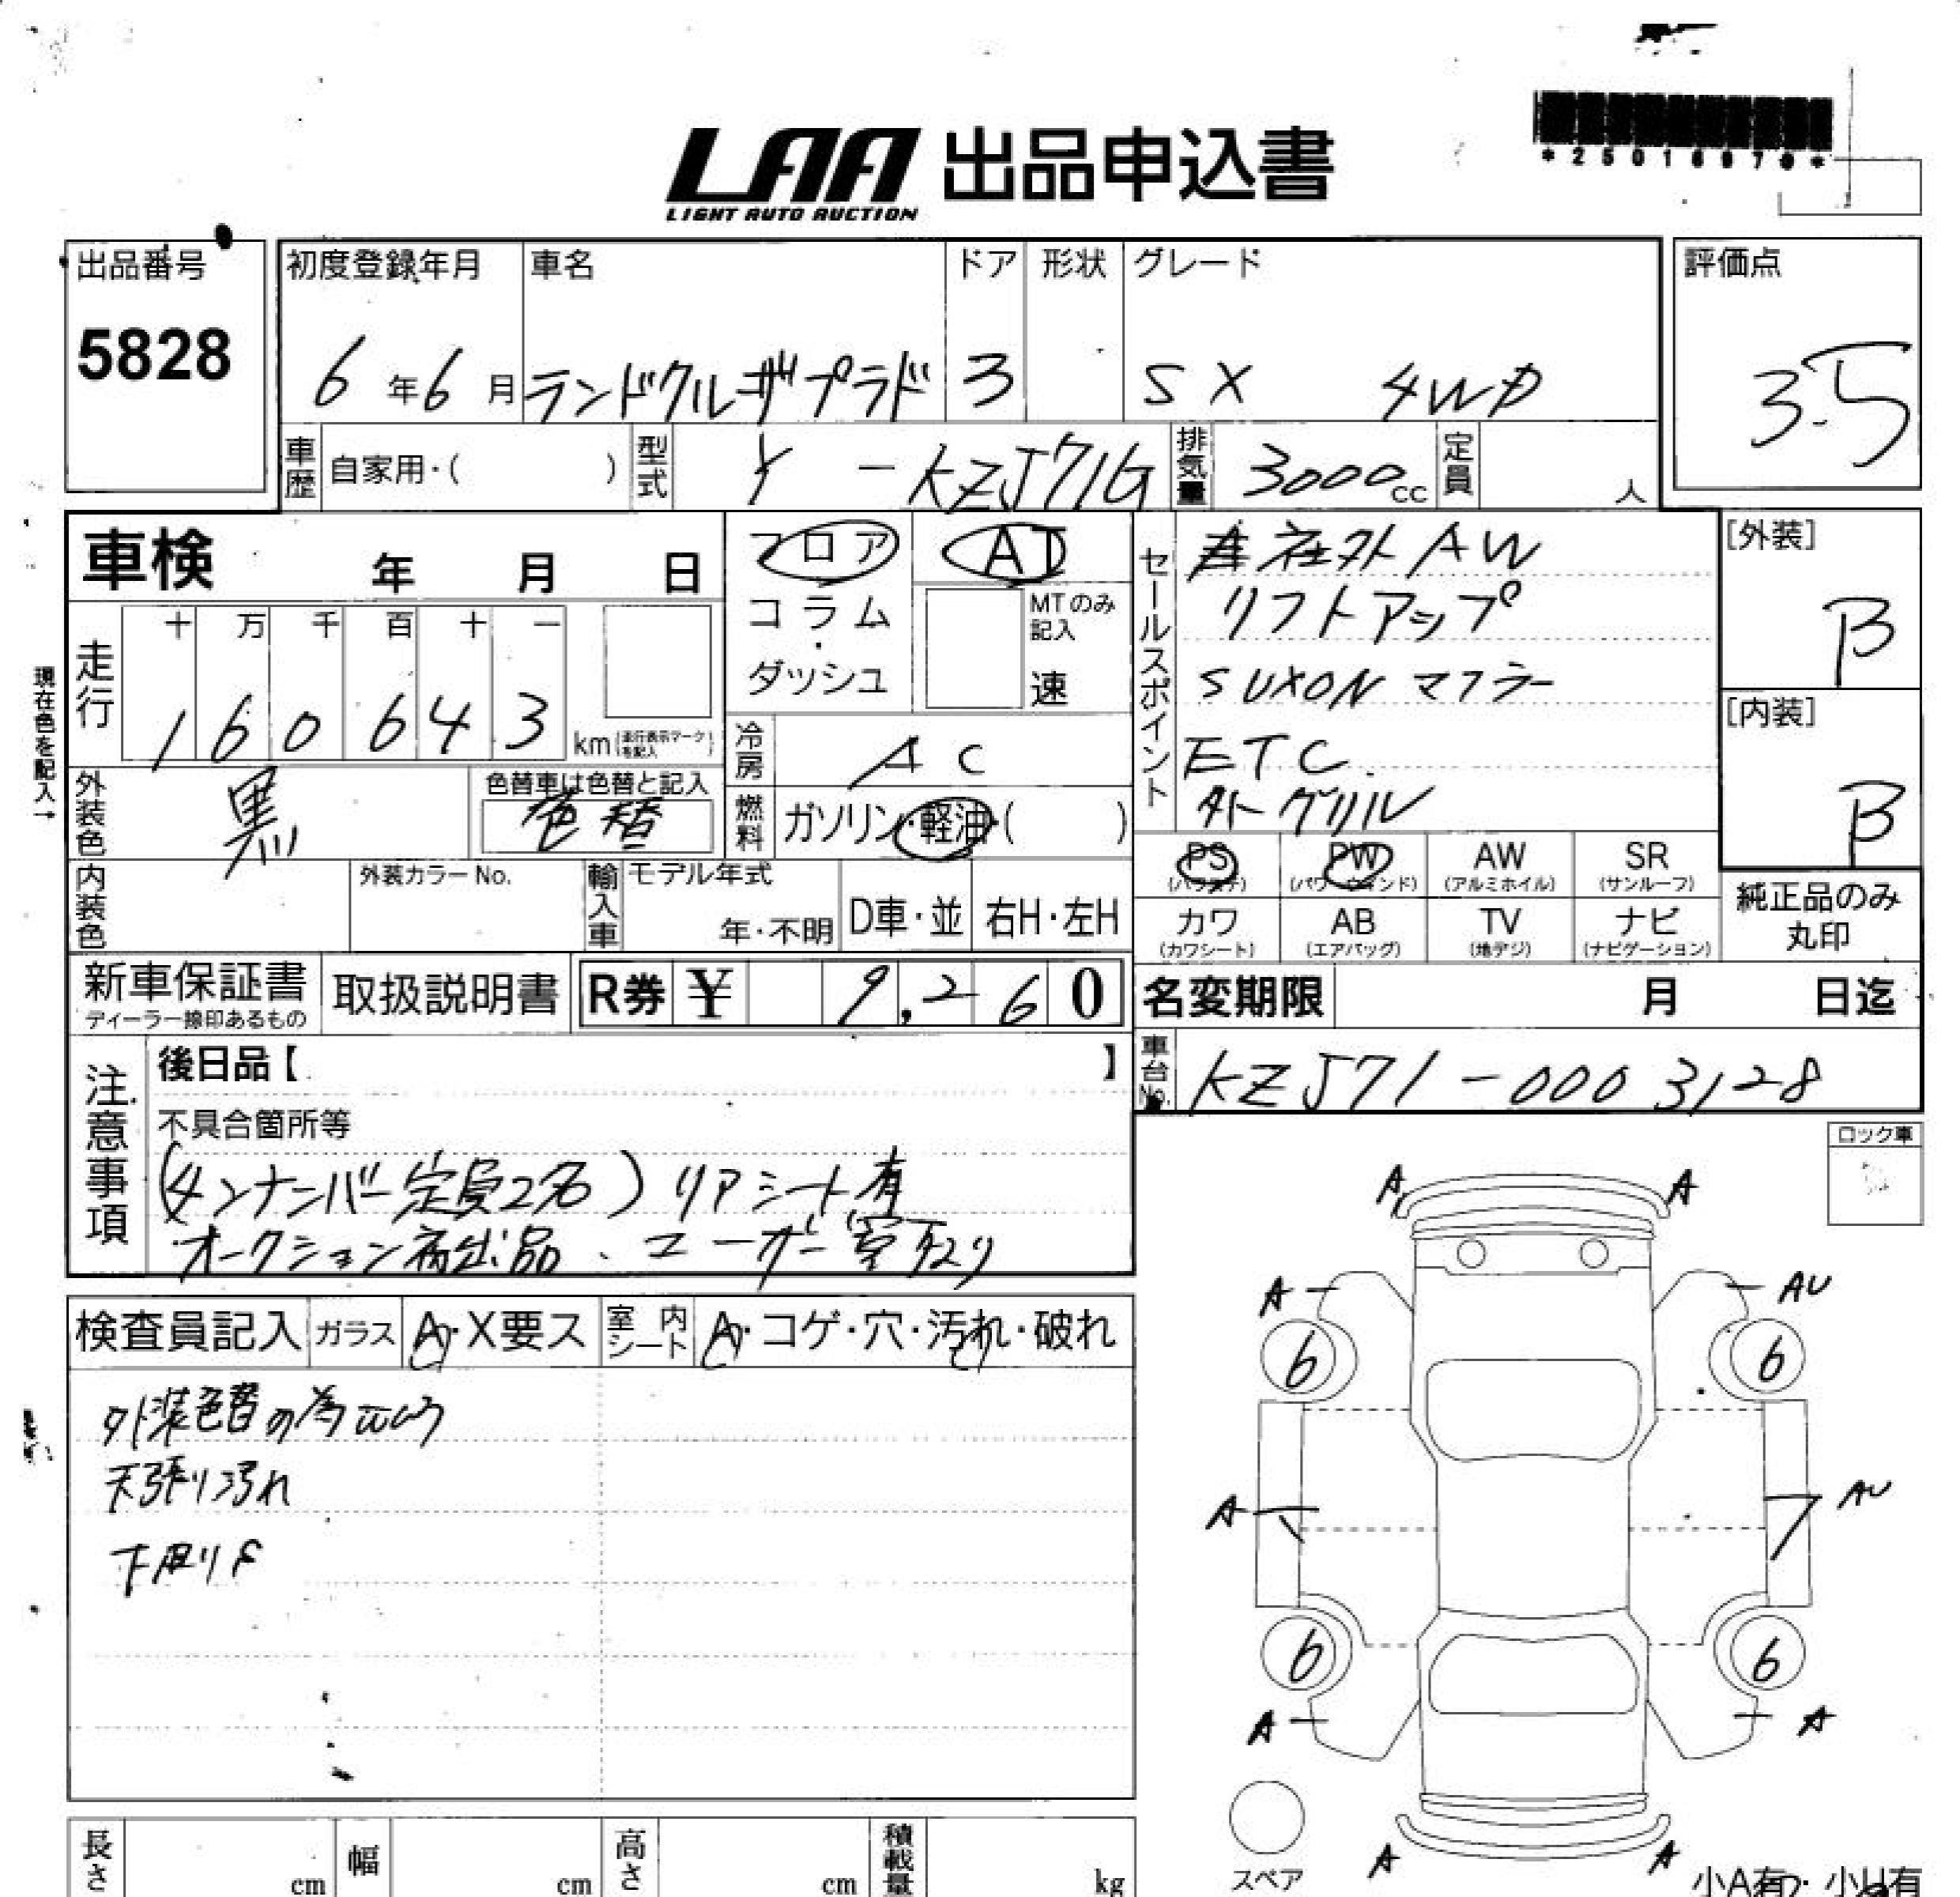 *25016979*
LAA 出品申込書
LIGHT AUTO AUCTION
出品番号
5828
初度登録年月
6年6月
車名
ランドクルザプラド
ドア
3
形状
グレード
SX 4WD
評価点
3.5
車歴
自家用・( )
型式
Y-KZJ71G
排気量
3000cc
定員
人
車検 年 月 日
フロア
コラム・ダッシュ
AT
MTのみ記入
速
セールスポイント
社外AW
リフトアップ
SUXON マフラー
ETC
外グリル
[外装]
B
[内装]
B
現在色を記入→
走行
十 万 千 百 十 一
1 6 0 6 4 3 km (走行表示マークを記入)
冷房
AC
燃料
ガソリン・軽油・( )
外装色
黒
色替車は色替と記入
色替
内装色
外装カラーNo.
輸入車
モデル年式
年・不明
D車・並
右H・左H
PS
(パワステ)
PW
(パワーウィンド)
AW
(アルミホイル)
SR
(サンルーフ)
カワ
(カワシート)
AB
(エアバッグ)
TV
(地デジ)
ナビ
(ナビゲーション)
純正品のみ
丸印
新車保証書
ディーラー線印あるもの
取扱説明書
R券 ¥ 9,260
名変期限 月 日迄
車台No.
KZJ71-0003128
注意事項
後日品【 】
不具合箇所等
(4ンナーバー定員2名) リアシート有
オークション初出品、ユーザー買取り
ロック車
検査員記入
ガラス
A・X要ス
室内シート
A・コゲ・穴・汚れ・破れ
外装色替の為
天張り汚れ
下廻りS
A A
A AU
6 6
A AU
6 6
A A
スペア
A A
小A有・小U有
長さ cm
幅 cm
高さ cm
積載量 kg